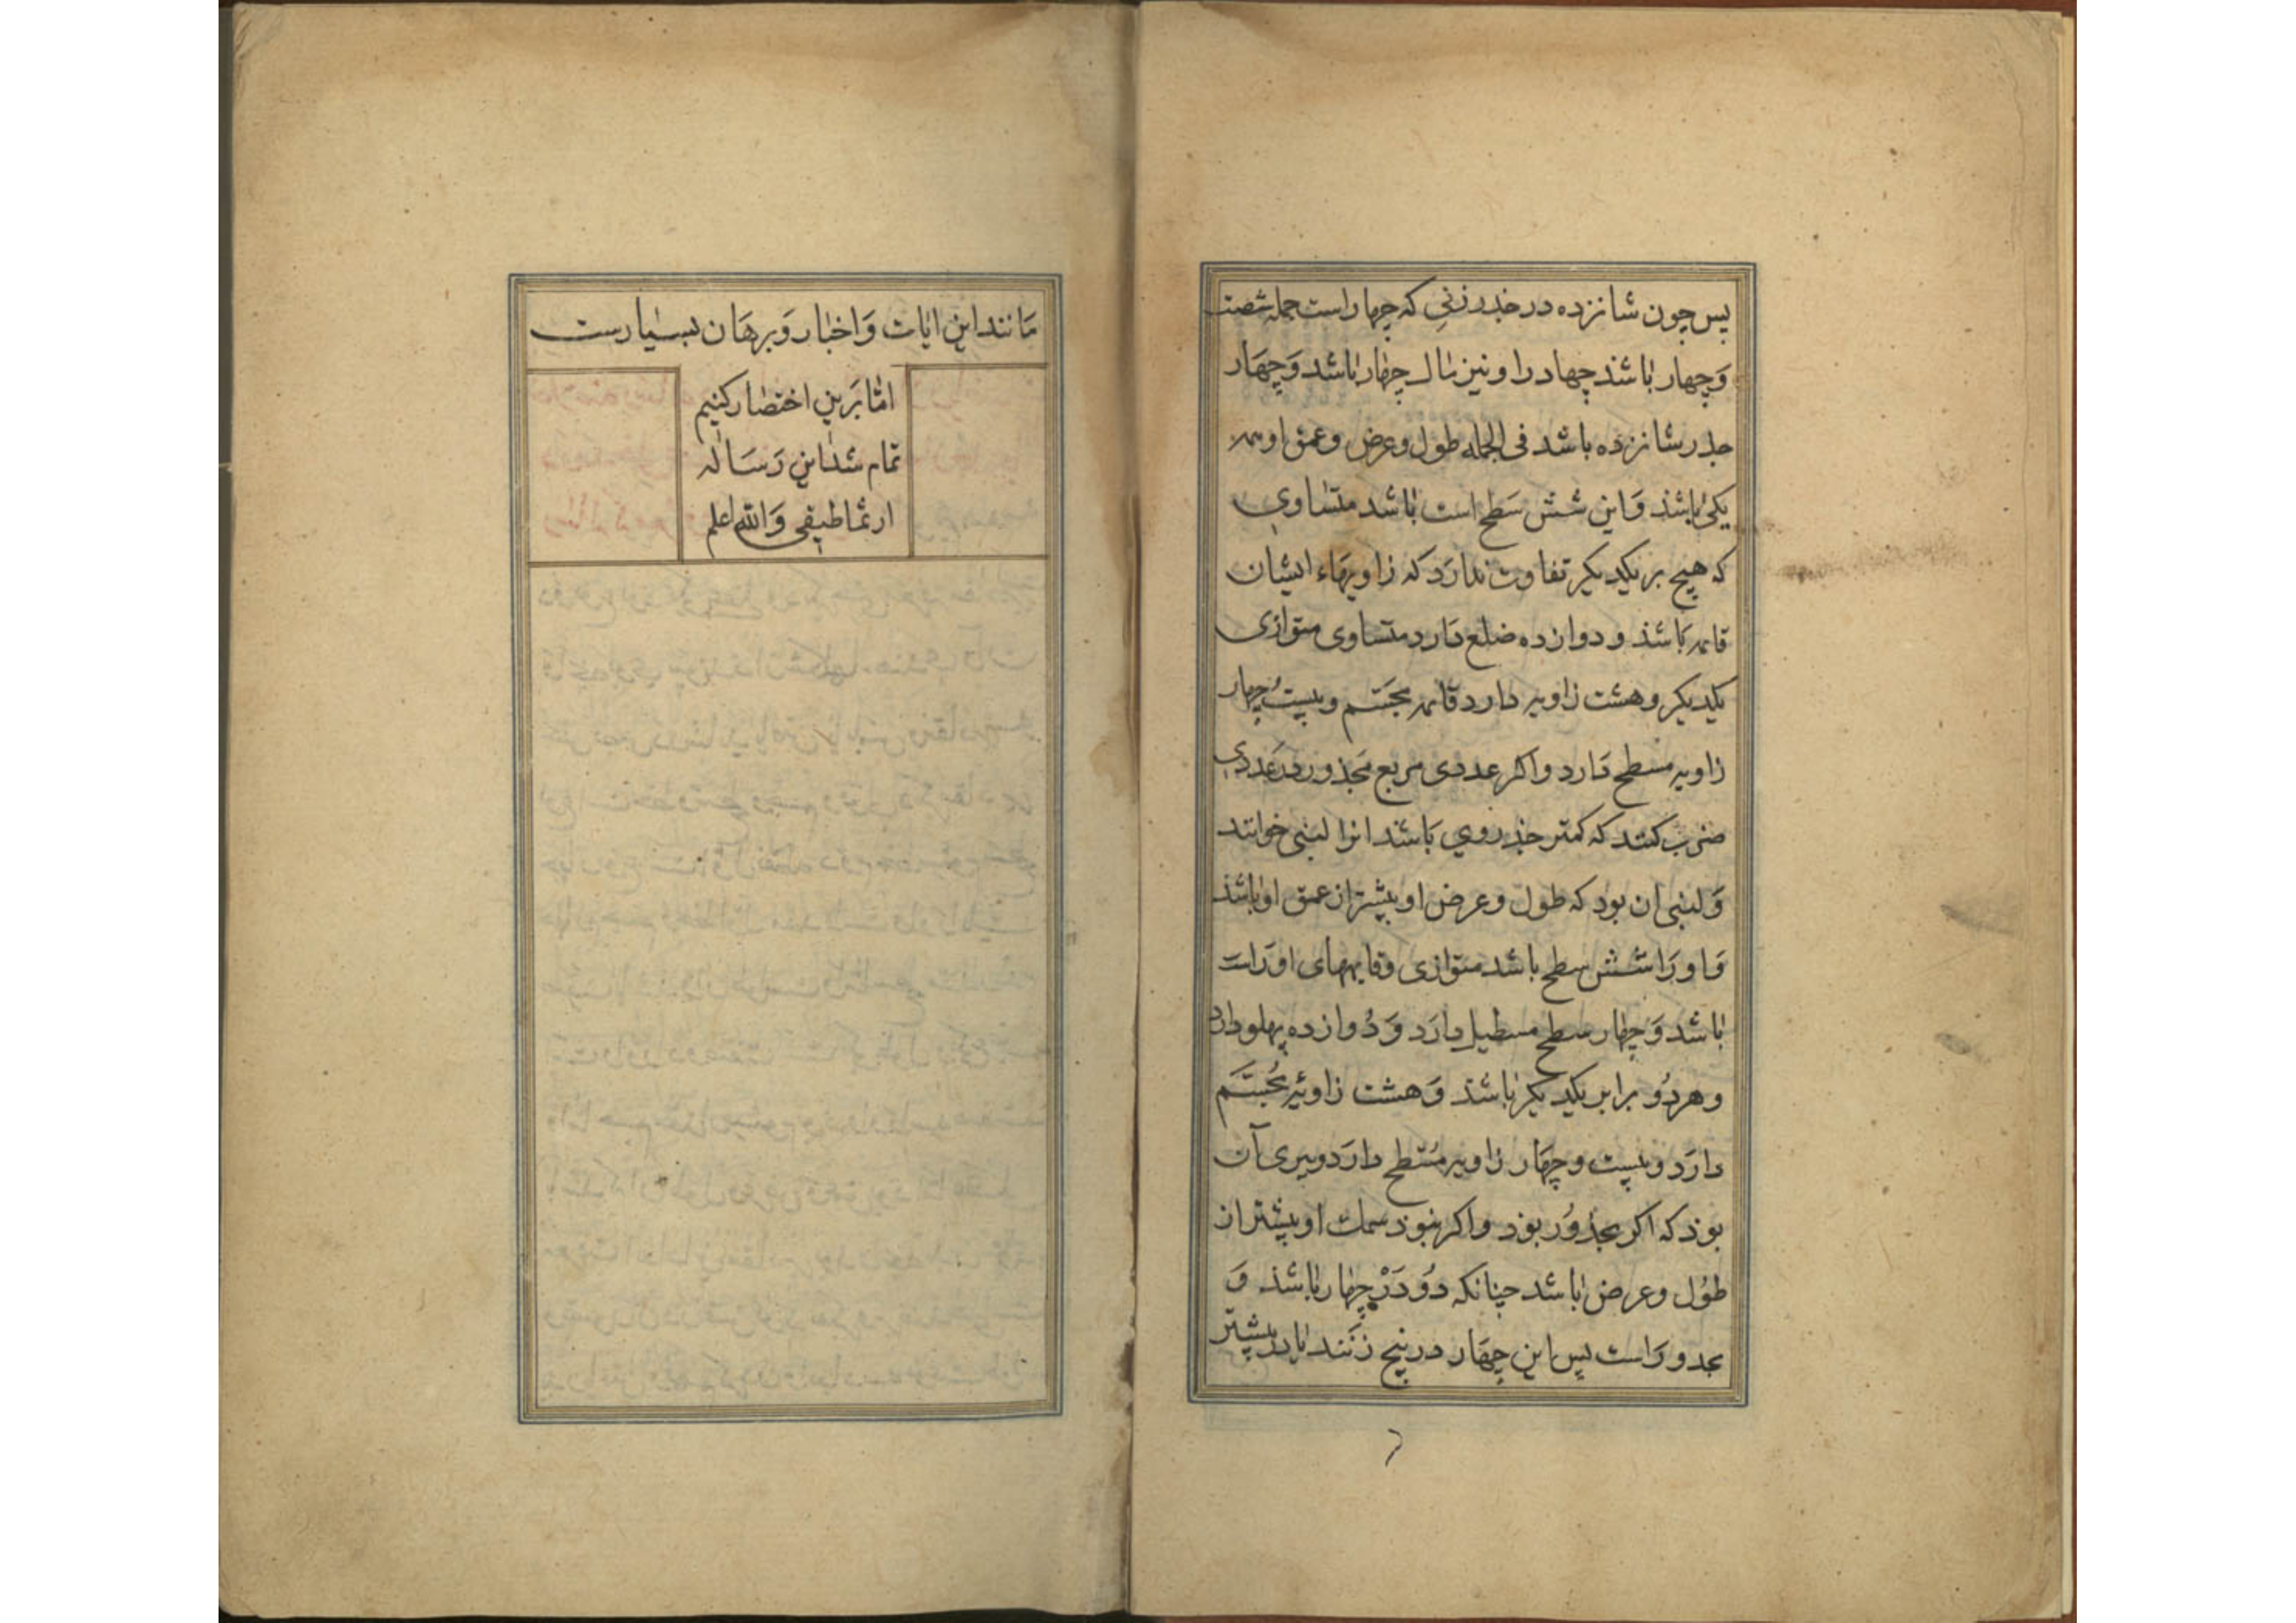 پس چون شانزده در جذر زنی که چهار است جمله شصت
وَچهار باشد چهار را و نیز مال چهار باشد وَچهَار
جذر شانزده باشد فی الجمله طول و عرض و عمق او همه
یکی باشذ وَاین شش سَطح است باشد متساوی
که هیچ بر یکدیکر تفاوت ندارَد که زاویهَاء ایشان
قایمه بَاشذ و دوازده ضلع دَارد متساوی متوازی
یکدیکر و هشت زاویه دارد قایمه مجَسَّم و بیست چهار
زاویه مسطح دَارد و اکر عددی مربع مَجذور در عَددی
ضرب کنند که کمتر جذر وی بَاشد انرا لبنی خوانند
وَ لبنی ان بود که طول و عرض او بیشتر از عمق او باشذ
وَ اورَا شش سطح باشد متوازی و قایمهای او رَاست
باشد وَچهار سطح مسطیل دارَد وَ دُوازده پهلو دارد
و هر دُو برابر یکدیکر باشذ وَهشت زاویَه مُجسَّم
دارَد و بیست و چهَار زاویه مُسَطح دارَد و بیری آن
بوذ که اکر مجذوُر بوَد و اکر نبوَد سمک او بیشتر از
طوُل و عرض باشد چنانکه دوُ دَرْ چهار باشذ وَ
مجدورَ است پس این چهَار در پنج زنَند یا در بیشتر
مَانند این ایات وَاخبار وَبرهَان بسیارست
امّا بَرین اختصار کنیم
تمام شد این رَسَاله
ارثماطیقی وَالله اعلم